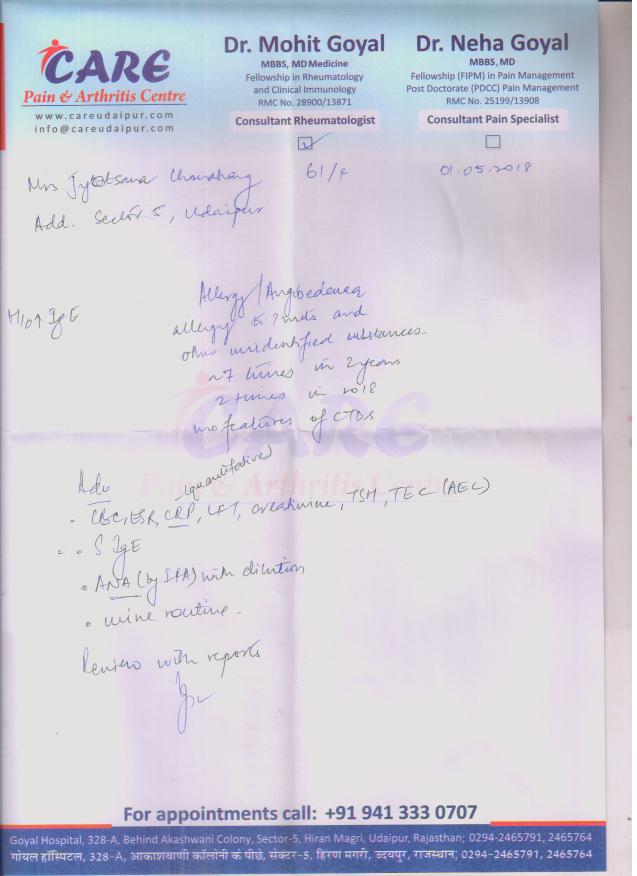 CARE
Pain & Arthritis Centre
www.careudaipur.com
info@careudaipur.com
Dr. Mohit Goyal
MBBS, MD Medicine
Fellowship in Rheumatology
and Clinical Immunology
RMC No. 28900/13871
Consultant Rheumatologist
Dr. Neha Goyal
MBBS, MD
Fellowship (FIPM) in Pain Management
Post Doctorate (PDCC) Pain Management
RMC No. 25199/13908
Consultant Pain Specialist
Mrs Jyotsana Choudhary 61/F 01.05.2018
Add. Sector 5, Udaipur
Allergy/Angioedema
H/o↑ IgE
allergy to ? nuts and
other unidentified substances
~7 times in 2 years
2 times in 2018
no features of CTDs
CARE
Pain & Arthritis Centre
Adv (quantitative)
• CBC, ESR, CRP, LFT, creatinine, TSH, TEC (AEC)
• S. IgE
• ANA (by IFA) with dilution
• urine routine.
Review with reports
For appointments call: +91 941 333 0707
Goyal Hospital, 328-A, Behind Akashwani Colony, Sector-5, Hiran Magri, Udaipur, Rajasthan; 0294-2465791, 2465764
गोयल हॉस्पिटल, 328-A, आकाशवाणी कॉलोनी के पीछे, सेक्टर-5, हिरण मगरी, उदयपुर, राजस्थान; 0294-2465791, 2465764